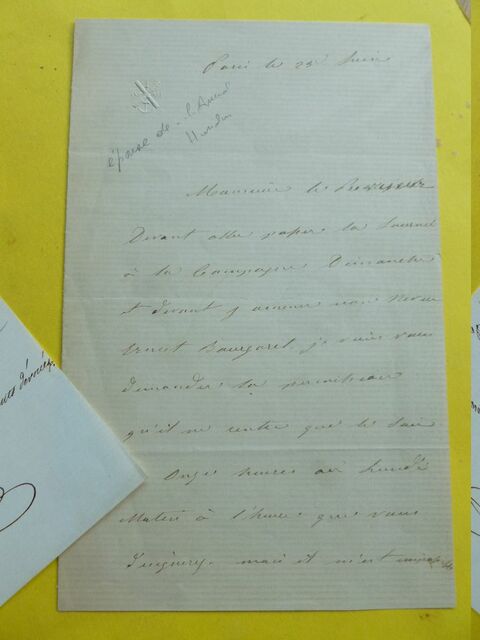 Paris le 23 Juin
épouse de l'Amiral
Monsieur le Proviseur
Devant aller passer la Journée
à la Campagne Dimanche
et devant y amener mon neveu
Ernest je viens vous
demander la permission
qu'il ne rentre que le soir
Onze heures ou lundi
Matin à l'heure que vous
mais il m'est